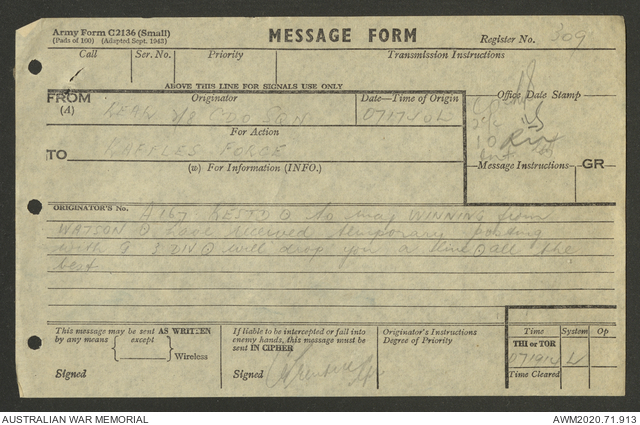 Army Form C2136 (Small)
(Pads of 100) (Adapted Sept. 1942)
MESSAGE FORM
Register No. 309
Call Ser. No. Priority Transmission Instructions
ABOVE THIS LINE FOR SIGNALS USE ONLY
FROM Originator Date—Time of Origin Office Date Stamp
(A) 2/8 CDO SQN
For Action
TO RAFFLES FORCE
(w) For Information (INFO.) Message Instructions GR
ORIGINATOR'S No. A167 RESTD to maj WINNING from
WATSON have received temporary posting
with G 3 DIV will drop you a line all the
best
This message may be sent AS WRITTEN
by any means except
Wireless
Signed
If liable to be intercepted or fall into
enemy hands, this message must be
sent IN CIPHER
Signed
Originator's Instructions
Degree of Priority
Time System Op
THI or TOR
071914 L
Time Cleared
AUSTRALIAN WAR MEMORIAL AWM2020.71.913